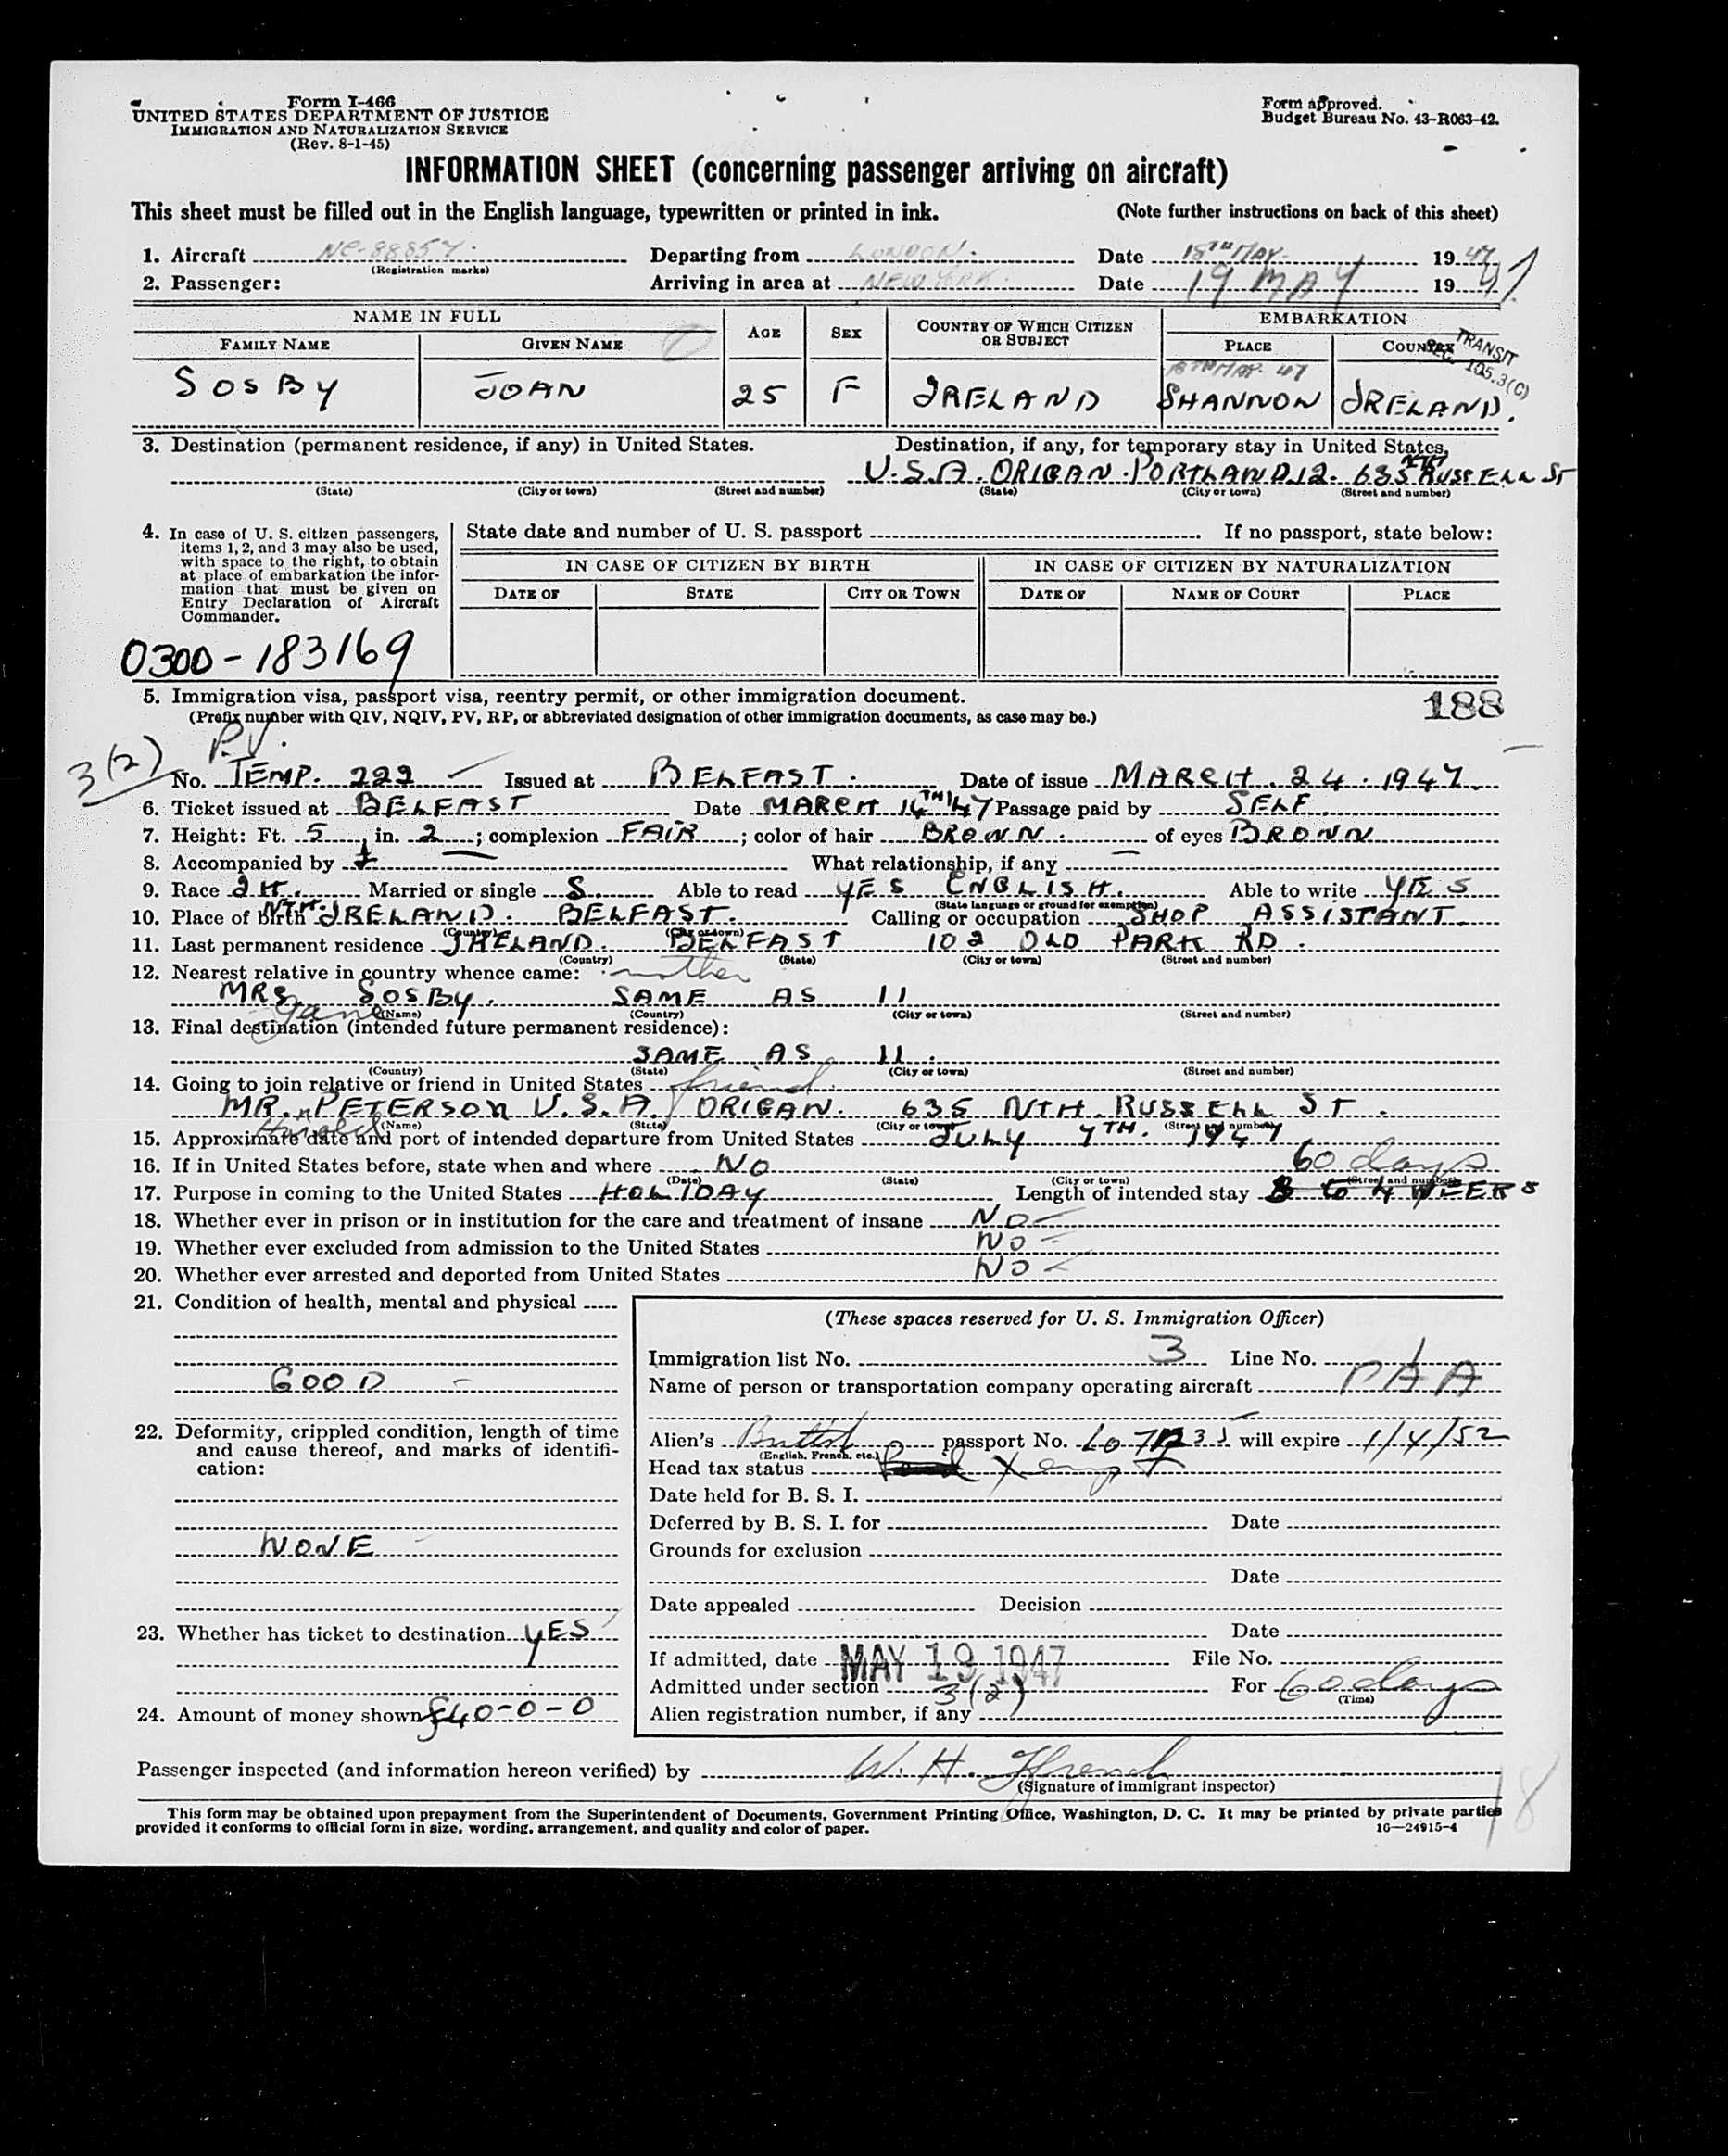 Form I-466
UNITED STATES DEPARTMENT OF JUSTICE
IMMIGRATION AND NATURALIZATION SERVICE
(Rev. 8-1-45)
Form approved.
Budget Bureau No. 43-R063-42.
INFORMATION SHEET (concerning passenger arriving on aircraft)
This sheet must be filled out in the English language, typewritten or printed in ink. (Note further instructions on back of this sheet)
1. Aircraft NC-88857. Departing from LONDON. Date 18TH MAY. 1947
(Registration marks)
2. Passenger: Arriving in area at NEW YORK. Date 19 MAY 1947
NAME IN FULL AGE SEX COUNTRY OF WHICH CITIZEN OR SUBJECT EMBARKATION
FAMILY NAME GIVEN NAME PLACE COUNTRY
TRANSIT
SEC. 105.3(C)
SOSBY JOAN 25 F IRELAND SHANNON IRELAND.
3. Destination (permanent residence, if any) in United States. Destination, if any, for temporary stay in United States.
U.S.A. ORIGAN. PORTLAND.12. 635 NTH RUSSELL ST
(State) (City or town) (Street and number) (State) (City or town) (Street and number)
4. In case of U. S. citizen passengers, items 1, 2, and 3 may also be used, with space to the right, to obtain at place of embarkation the information that must be given on Entry Declaration of Aircraft Commander.
State date and number of U. S. passport If no passport, state below:
IN CASE OF CITIZEN BY BIRTH IN CASE OF CITIZEN BY NATURALIZATION
DATE OF STATE CITY OR TOWN DATE OF NAME OF COURT PLACE
0300-183169
5. Immigration visa, passport visa, reentry permit, or other immigration document.
(Prefix number with QIV, NQIV, PV, RP, or abbreviated designation of other immigration documents, as case may be.)
188
P.V.
3(2)
No. TEMP. 222 Issued at BELFAST. Date of issue MARCH. 24. 1947.
6. Ticket issued at BELFAST Date MARCH 14TH 47 Passage paid by SELF
7. Height: Ft. 5 in. 2; complexion FAIR; color of hair BROWN. of eyes BROWN
8. Accompanied by What relationship, if any —
9. Race Married or single S. Able to read YES ENGLISH. Able to write YES
(State language or ground for exemption)
10. Place of birth NTH. IRELAND. BELFAST. Calling or occupation SHOP ASSISTANT
(Country) (City or town)
11. Last permanent residence IRELAND. BELFAST 102 OLD PARK RD.
(Country) (State) (City or town) (Street and number)
12. Nearest relative in country whence came: mother
MRS Jane SOSBY. SAME AS 11
(Name) (Country) (City or town) (Street and number)
13. Final destination (intended future permanent residence):
SAME AS 11.
(Country) (State) (City or town) (Street and number)
14. Going to join relative or friend in United States friend.
MR. Harold PETERSON U.S.A. ORIGAN. 635 NTH. RUSSELL ST.
(Name) (State) (City or town) (Street and number)
15. Approximate date and port of intended departure from United States JULY 7TH. 1947
16. If in United States before, state when and where NO 60 days
(Date) (State) (City or town) (Street and number)
17. Purpose in coming to the United States HOLIDAY Length of intended stay 3 to 4 WEEKS
18. Whether ever in prison or in institution for the care and treatment of insane NO
19. Whether ever excluded from admission to the United States NO
20. Whether ever arrested and deported from United States NO
21. Condition of health, mental and physical
GOOD
22. Deformity, crippled condition, length of time and cause thereof, and marks of identification:
NONE
23. Whether has ticket to destination YES
24. Amount of money shown £40-0-0
(These spaces reserved for U. S. Immigration Officer)
Immigration list No. 3 Line No. 1
Name of person or transportation company operating aircraft PAA
Alien's British passport No. will expire 1/4/52
(English, French, etc.)
Head tax status Xempt
Date held for B. S. I.
Deferred by B. S. I. for Date
Grounds for exclusion
Date
Date appealed Decision
Date
If admitted, date MAY 19 1947 File No.
Admitted under section 3(2) For 60 days
(Time)
Alien registration number, if any
Passenger inspected (and information hereon verified) by W. H. French
(Signature of immigrant inspector)
18
This form may be obtained upon prepayment from the Superintendent of Documents, Government Printing Office, Washington, D. C. It may be printed by private parties
provided it conforms to official form in size, wording, arrangement, and quality and color of paper. 16—24915-4